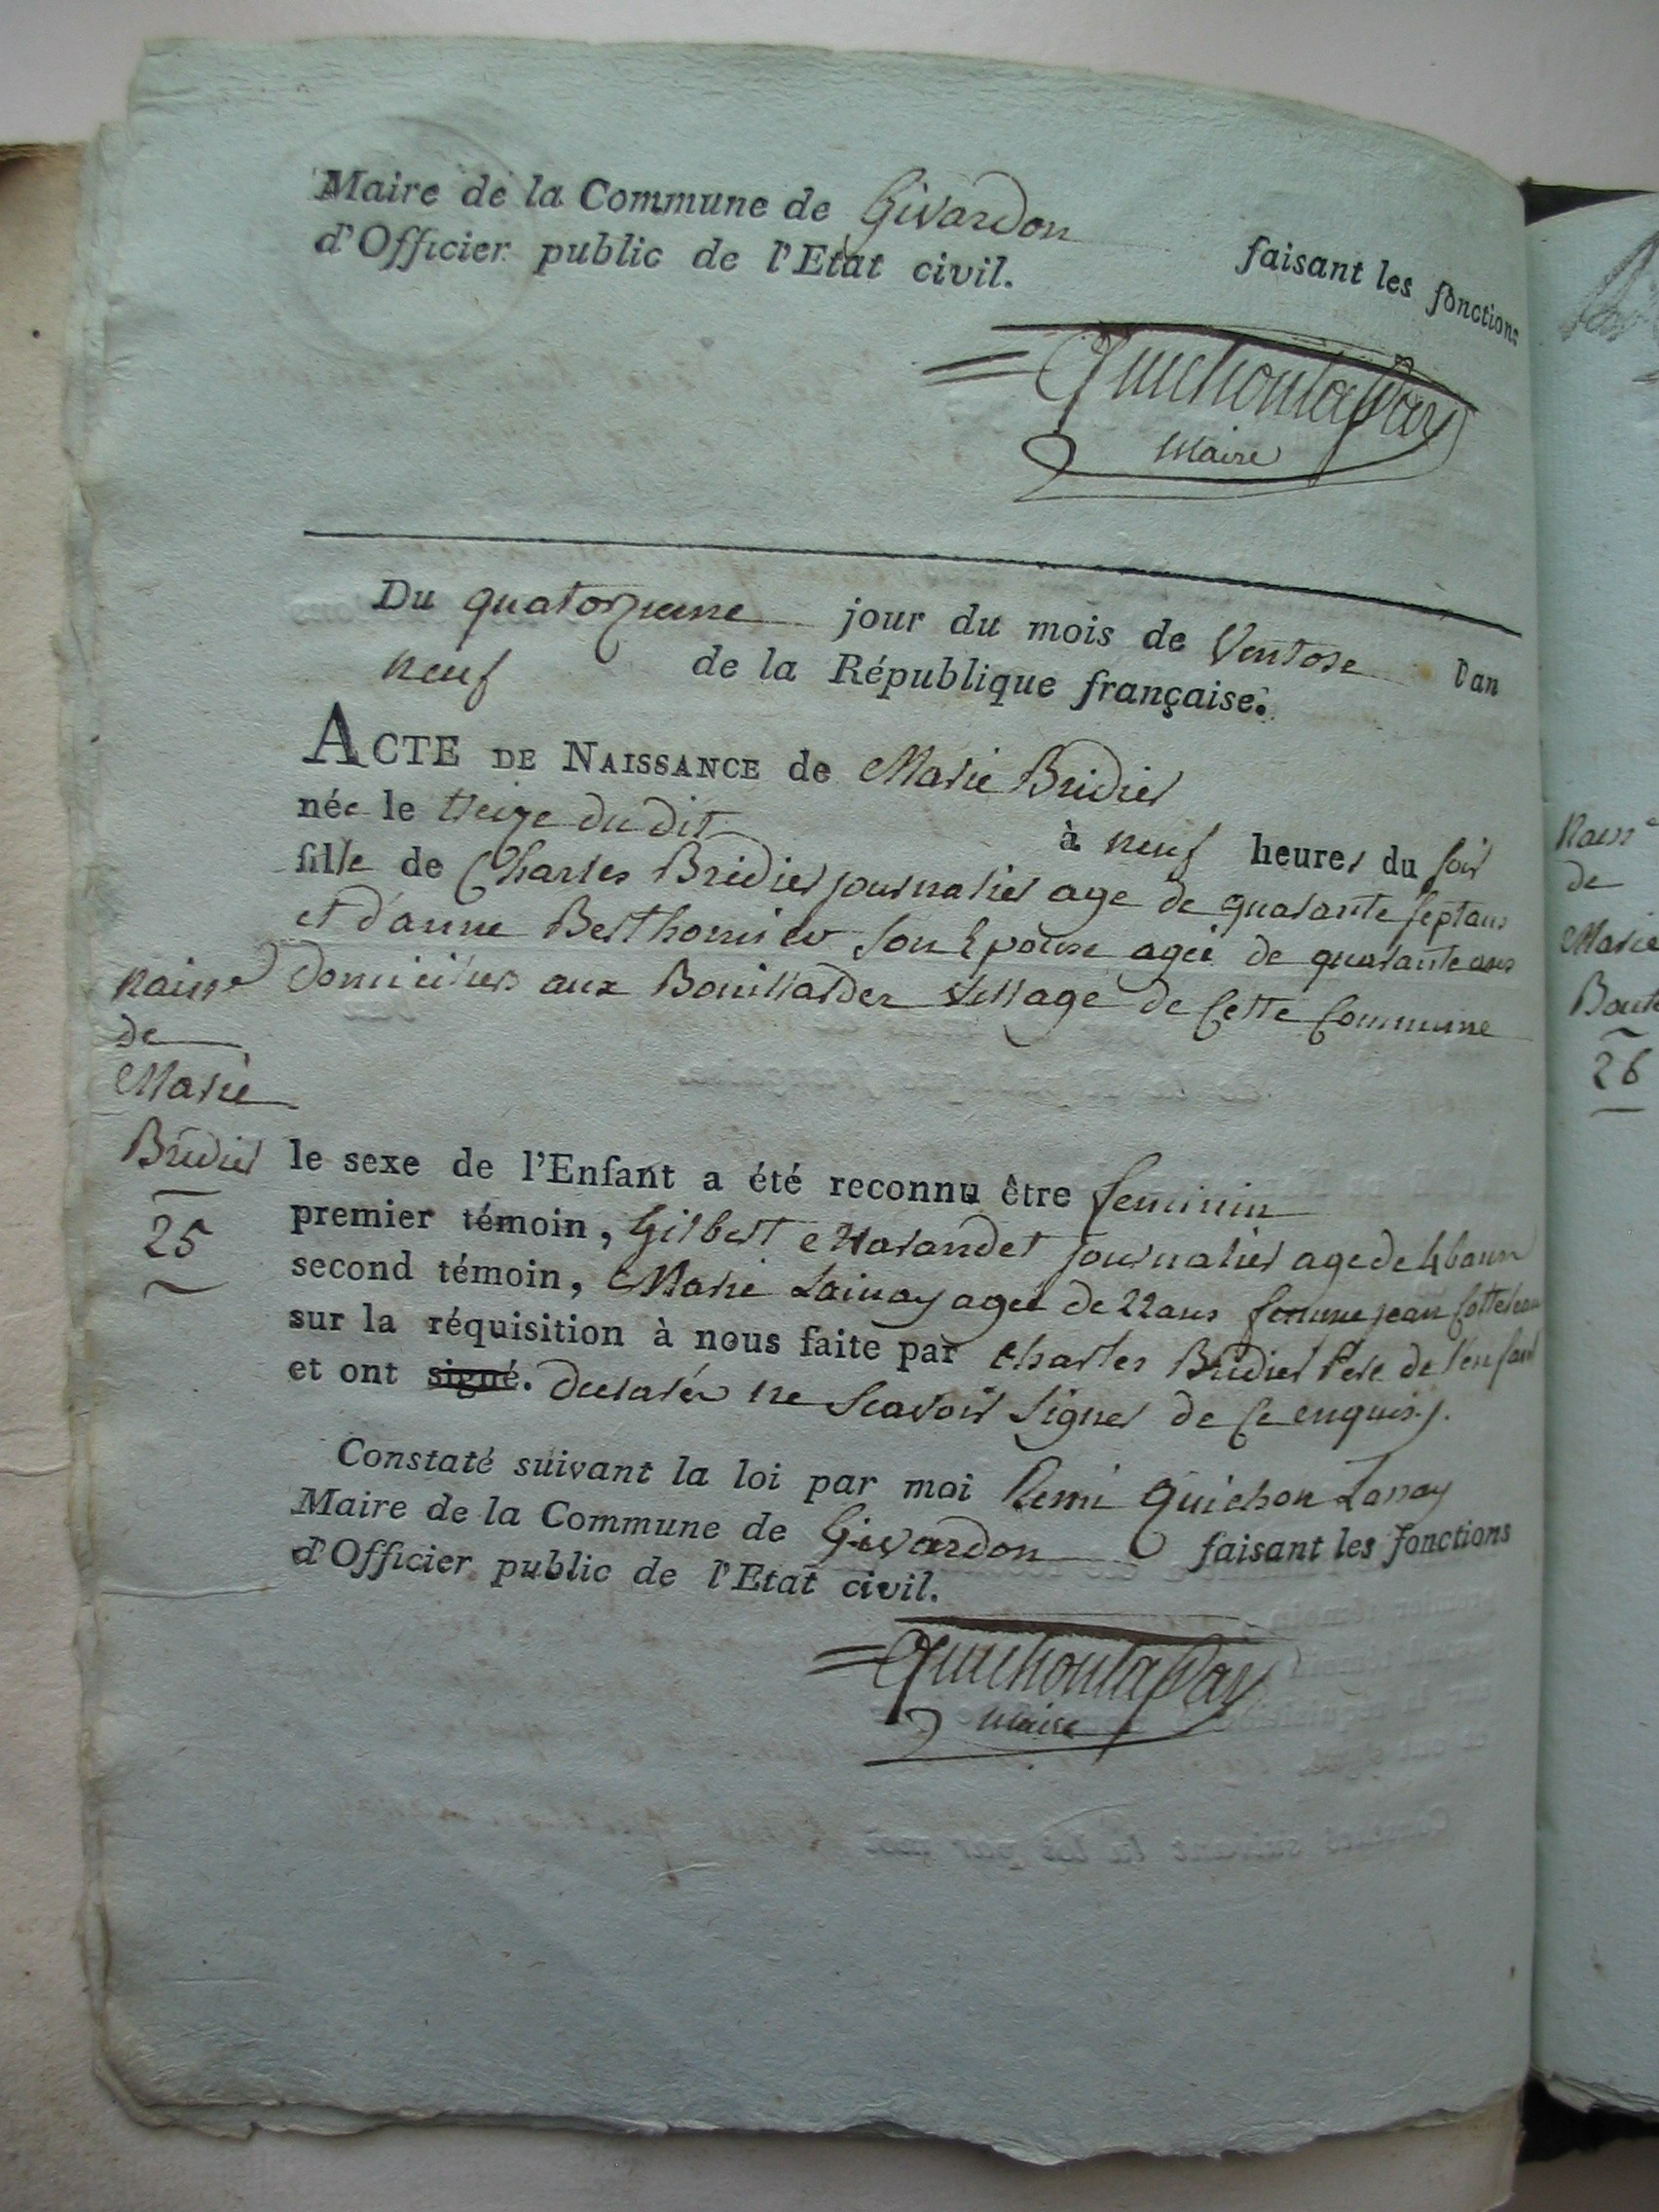 Maire de la Commune de Givardon faisant les fonctions
d'Officier public de l'Etat civil.
Quichonlaffay
Maire
Du quatorzieme jour du mois de Ventose l'an
neuf de la République française.
ACTE DE NAISSANCE de Marie Bridier
née le treize du dit à neuf heures du soir
fille de Charles Bridier journalier age de quarante septans
et d'anne Berthomier son Epouse agée de quarante ans
Domiciliers aux Bouillardes village de cette Commune
naisse
de
Marie
Bridier
25
le sexe de l'Enfant a été reconnu être feminin
premier témoin, Gilbert Marandet journalier age de
second témoin, Marie agee de 22 ans femme jean
sur la réquisition à nous faite par Charles Bridier Pere de l'enfant
et ont signé. declarés ne scavoir signer de ce enquis.
Constaté suivant la loi par moi Remi Quichon
Maire de la Commune de Givardon faisant les fonctions
d'Officier public de l'Etat civil.
Quichonlaffay
Maire
de
Marie
26